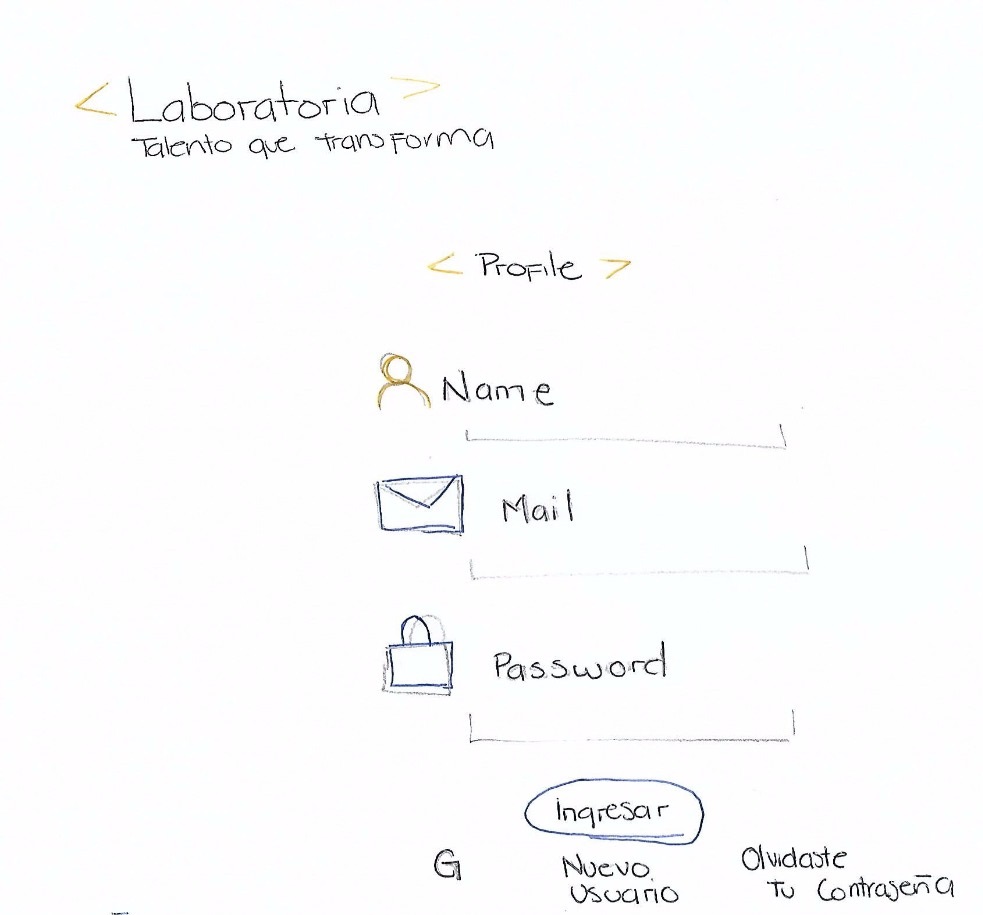 < Laboratoria >
Talento que transforma
< Profile >
Name
Mail
Password
Ingresar
G
Nuevo
Usuario
Olvidaste
Tu Contraseña